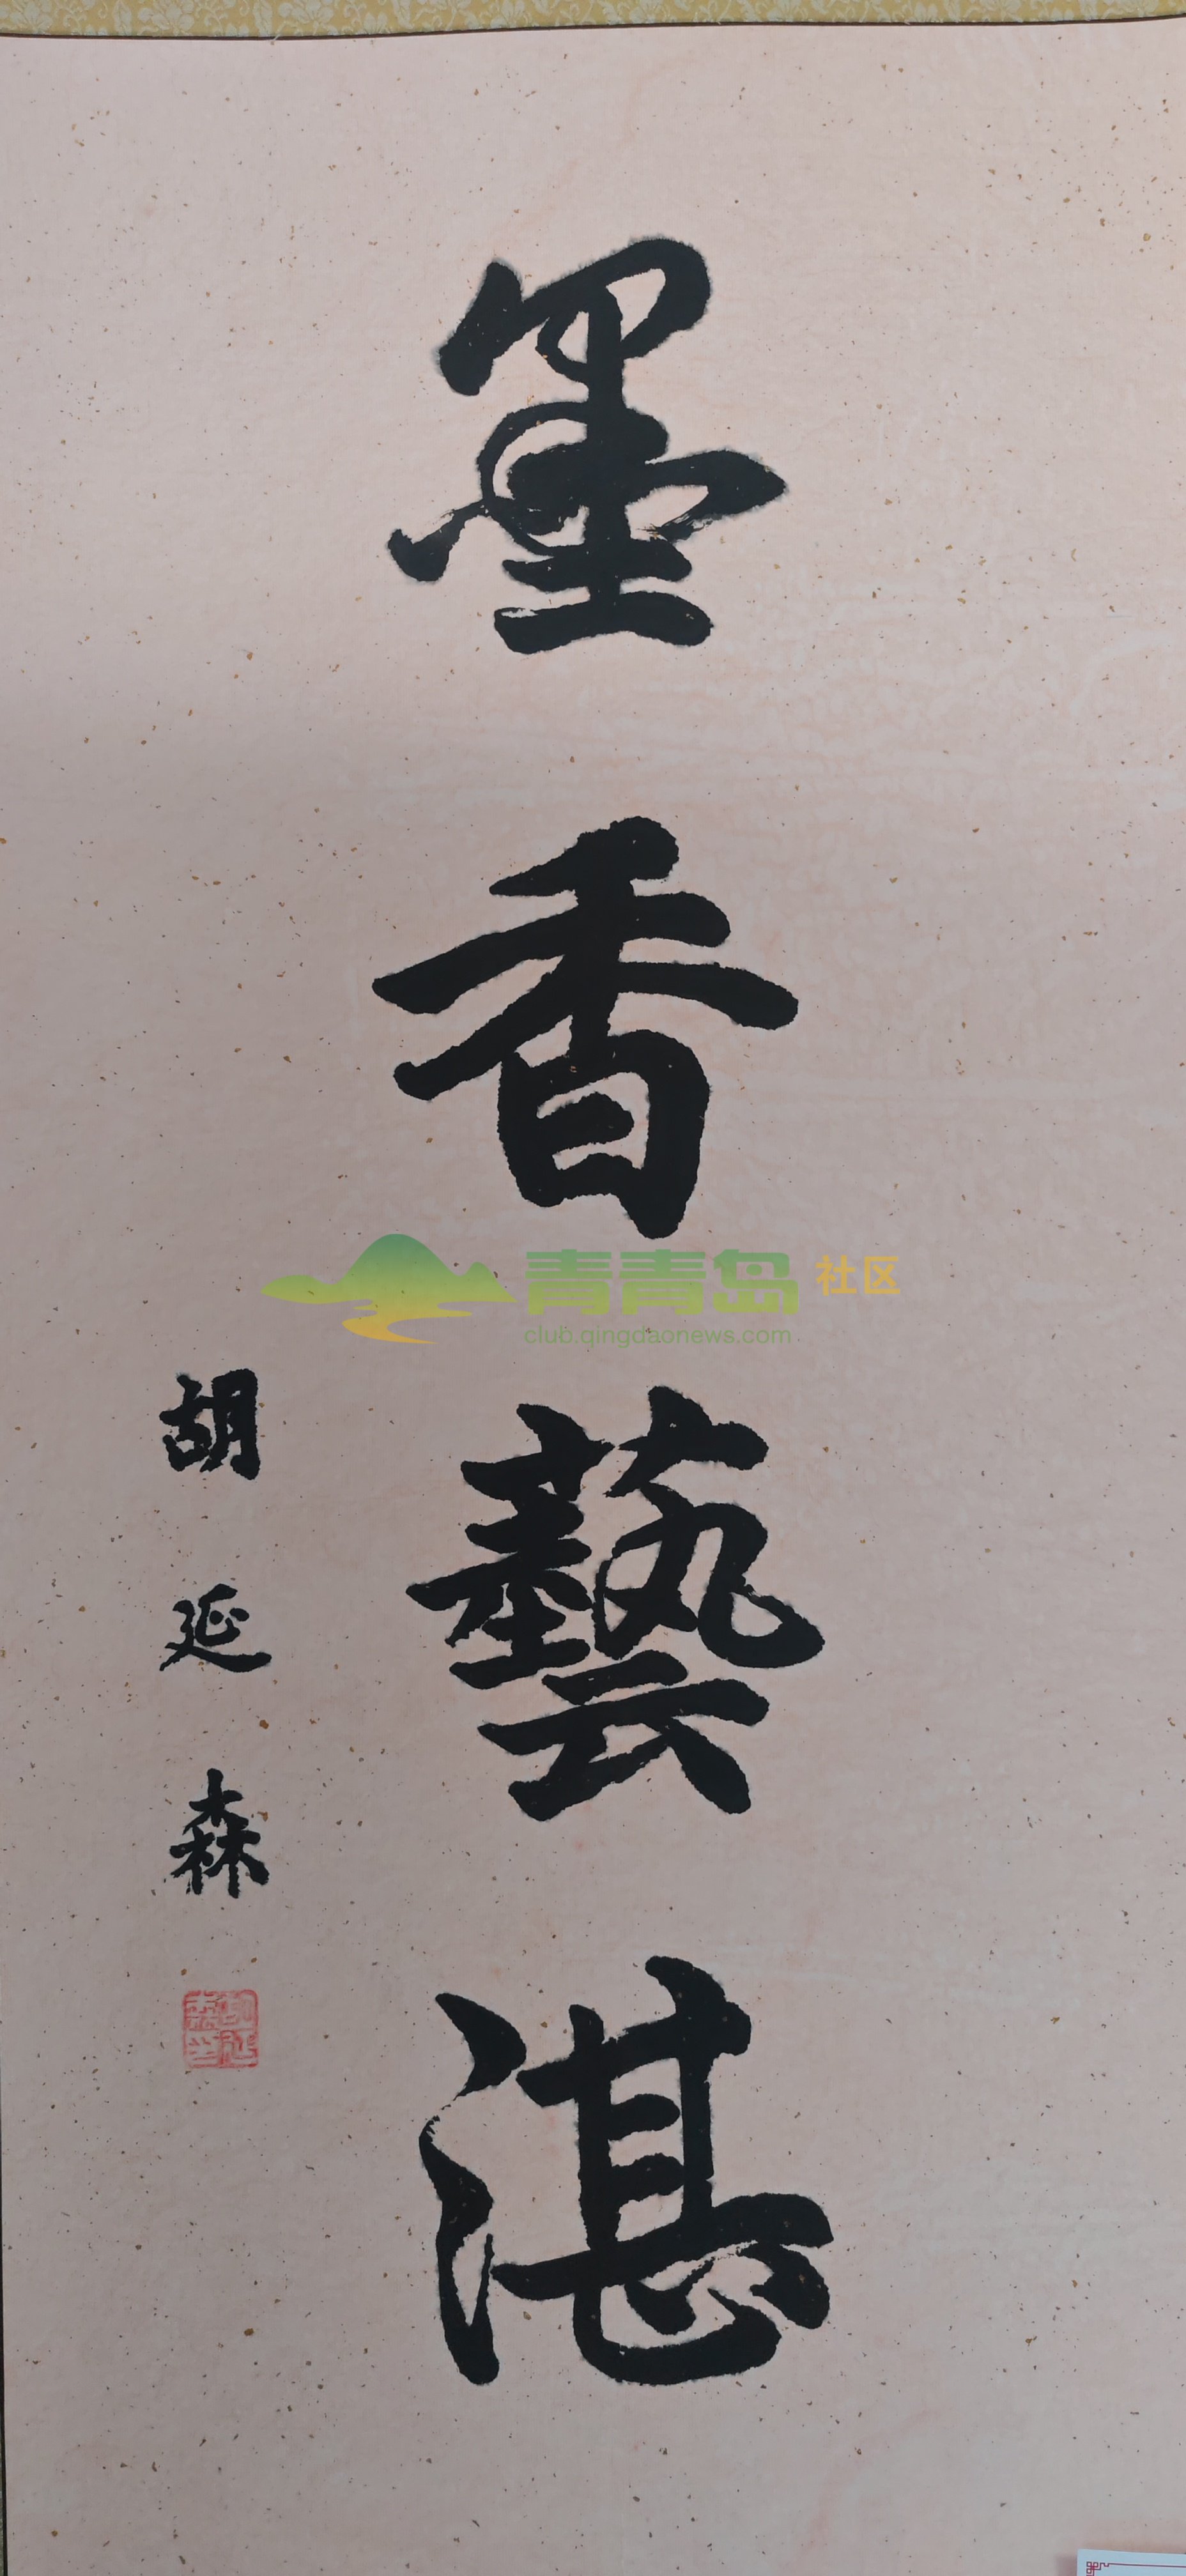 墨香藝湛
胡延森
青青岛社区
club.qingdaonews.com